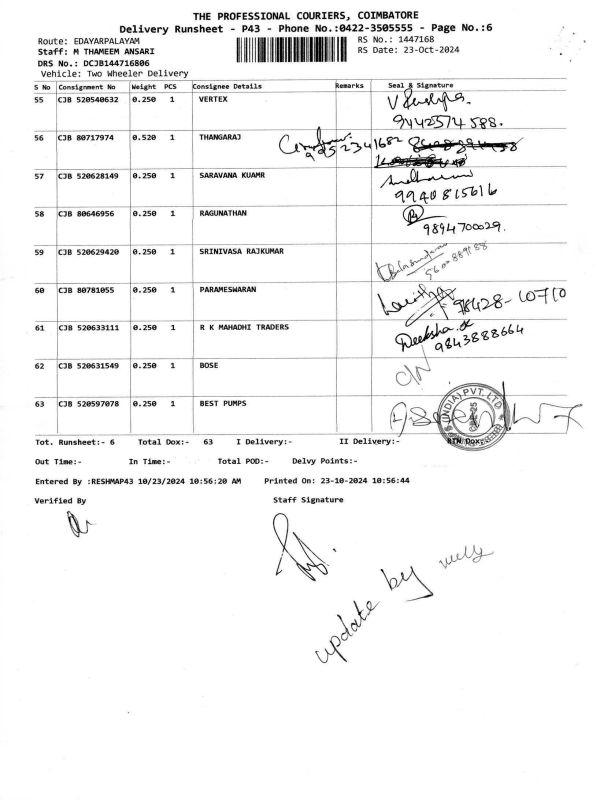 THE PROFESSIONAL COURIERS, COIMBATORE
Delivery Runsheet - P43 - Phone No.:0422-3505555 - Page No.:6
Route: EDAYARPALAYAM RS No.: 1447168
Staff: M THAMEEM ANSARI RS Date: 23-Oct-2024
DRS No.: DCJB144716806
Vehicle: Two Wheeler Delivery
S No Consignment No Weight PCS Consignee Details Remarks Seal & Signature
55 CJB 520540632 0.250 1 VERTEX
9442574588.
56 CJB 80717974 0.520 1 THANGARAJ 9952341682
57 CJB 520628149 0.250 1 SARAVANA KUAMR
9940815616
58 CJB 80646956 0.250 1 RAGUNATHAN
9894700029.
59 CJB 520629420 0.250 1 SRINIVASA RAJKUMAR
60 CJB 80781055 0.250 1 PARAMESWARAN 98428-10710
61 CJB 520633111 0.250 1 R K MAHADHI TRADERS Deeksha
9843888664
62 CJB 520631549 0.250 1 BOSE
63 CJB 520597078 0.250 1 BEST PUMPS
(INDIA) PVT. LTD
Tot. Runsheet:- 6 Total Dox:- 63 I Delivery:- II Delivery:- RTN Dox:-
Out Time:- In Time:- Total POD:- Delvy Points:-
Entered By :RESHMAP43 10/23/2024 10:56:20 AM Printed On: 23-10-2024 10:56:44
Verified By Staff Signature
update by